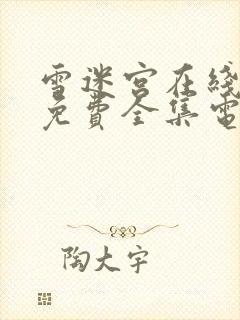 雪迷宮在綫
免費全集電
陶大宇